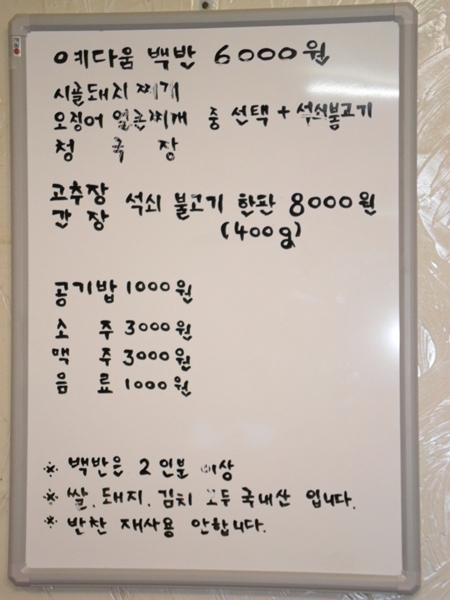 예다움 백반 6000원
시골돼지 찌개
오징어 얼큰찌개 중 선택 + 석쇠불고기
청 국 장
고추장 석쇠 불고기 한판 8000원
간 장 (400g)
공기밥 1000원
소 주 3000원
맥 주 3000원
음 료 1000원
※ 백반은 2인분 이상
※ 쌀, 돼지, 김치 모두 국내산 입니다.
※ 반찬 재사용 안합니다.